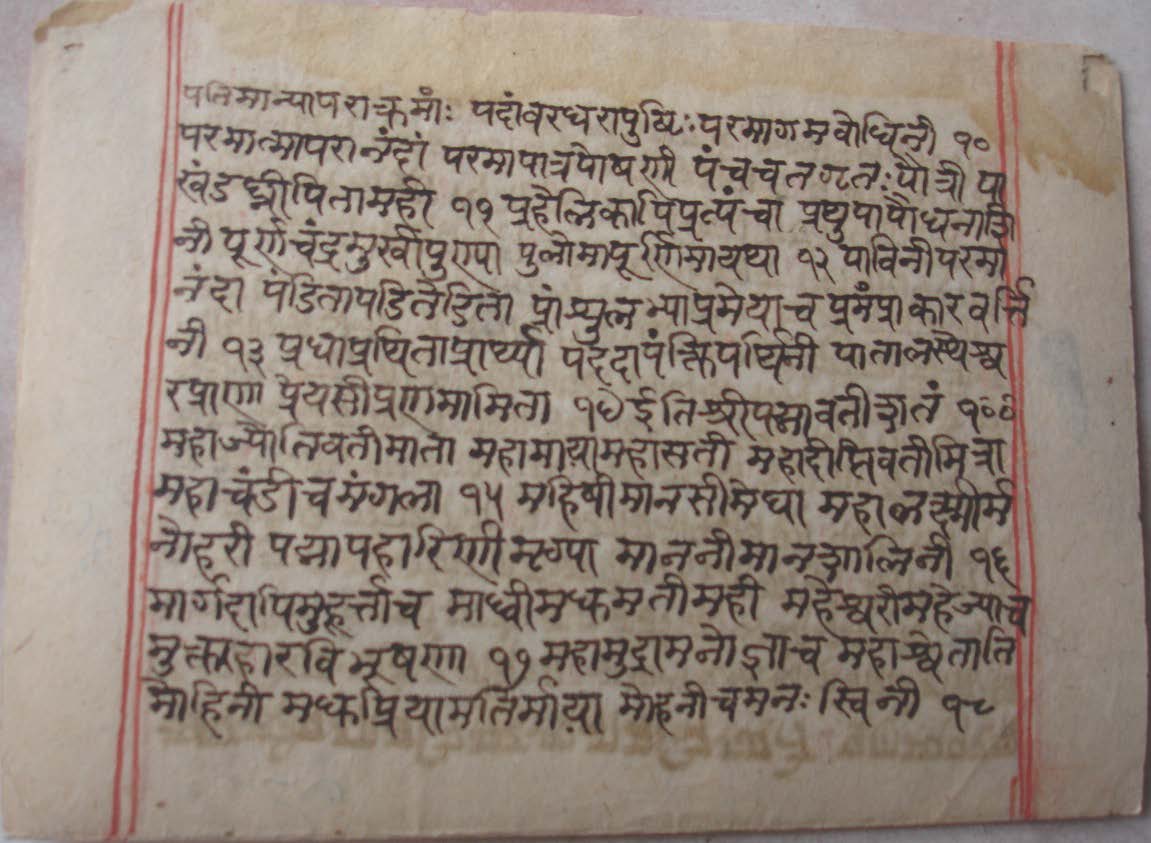 पतिमान्यापराक्रमां: पदांवरधरापुष्टि: परमागमबोधिनी १०
परमात्मापरानंदा परमापात्रपोषणी पंचच पौत्री पा
खंडघ्नीपितामही ११ प्रहेलिकापिप्रत्पंचा प्रथुपापौघनाशि
नी पूर्णचंद्रमुखीपुण्पा पुलोमापूर्णिमायथा १२ पाविनीपरमा
नंदा पंडितापडितेडिता प्रांश्युलभ्याप्रमेयाच प्रमंप्राकारवर्त्ति
नी १३ प्रधाप्रथितााप्रार्थ्या पद्ददापंक्तिपर्थिनी पातालस्थेश्व
रप्राणा प्रेयसीप्रणमामिता १४ ईतिश्रीपद्मावतीशतं १००
महाज्योतिवतीमाता महामाया़महासती महादीप्तिवतीमित्रा
महाचंडीचमंगला १५ महिषीमानसीमेघा महालक्ष्मीर्म
नोहरी पद्मापहारिणीमृग्पा माननीमानशालिनी १६
मार्गदापिमुहूर्त्ताच माध्वीमधुमतीमही महेश्वरीमहेज्याच
मुक्ताहारविभूषणा १७ महामुद्रामनोज्ञाच महाश्वेताति
मोहिनी मधुप्रियामतिर्माया़ मोहनीचमन:स्विनी १८